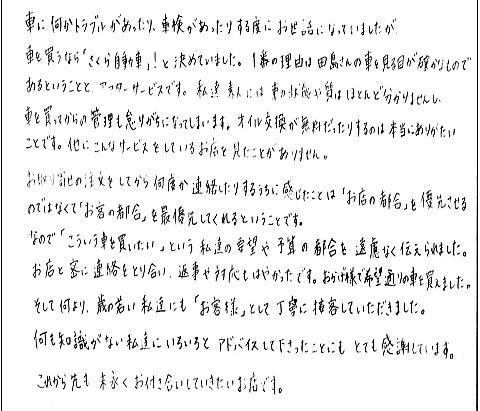 車に何かトラブルがあったり、車検があったりする度にお世話になっていましたが
車を買うなら「さくら自動車」！と決めていました。1番の理由は田島さんの車を見る目が確かなもので
あるということと、アフターサービスです。私達素人には車の状態や質はほとんど分かりませんし、
車を買ってからの管理も怠りがちになってしまいます。オイル交換が無料だったりするのは本当にありがたい
ことです。他にこんなサービスをしているお店を見たことがありません。
お取り寄せの注文をしてから何度か連絡したりするうちに感じたことは「お店の都合」を優先させる
のではなくて「お客の都合」を最優先してくれるということです。
なので「こういう車を買いたい」という私達の要望や予算の都合を遠慮なく伝えられました。
お店と密に連絡をとり合い、返事や対応もはやかったです。おかげ様で希望通りの車を買えました。
そして何より、歳の若い私達にも「お客様」として丁寧に接客していただきました。
何も知識がない私達にいろいろとアドバイスして下さったことにもとても感謝しています。
これから先も末永くお付き合いしていきたいお店です。